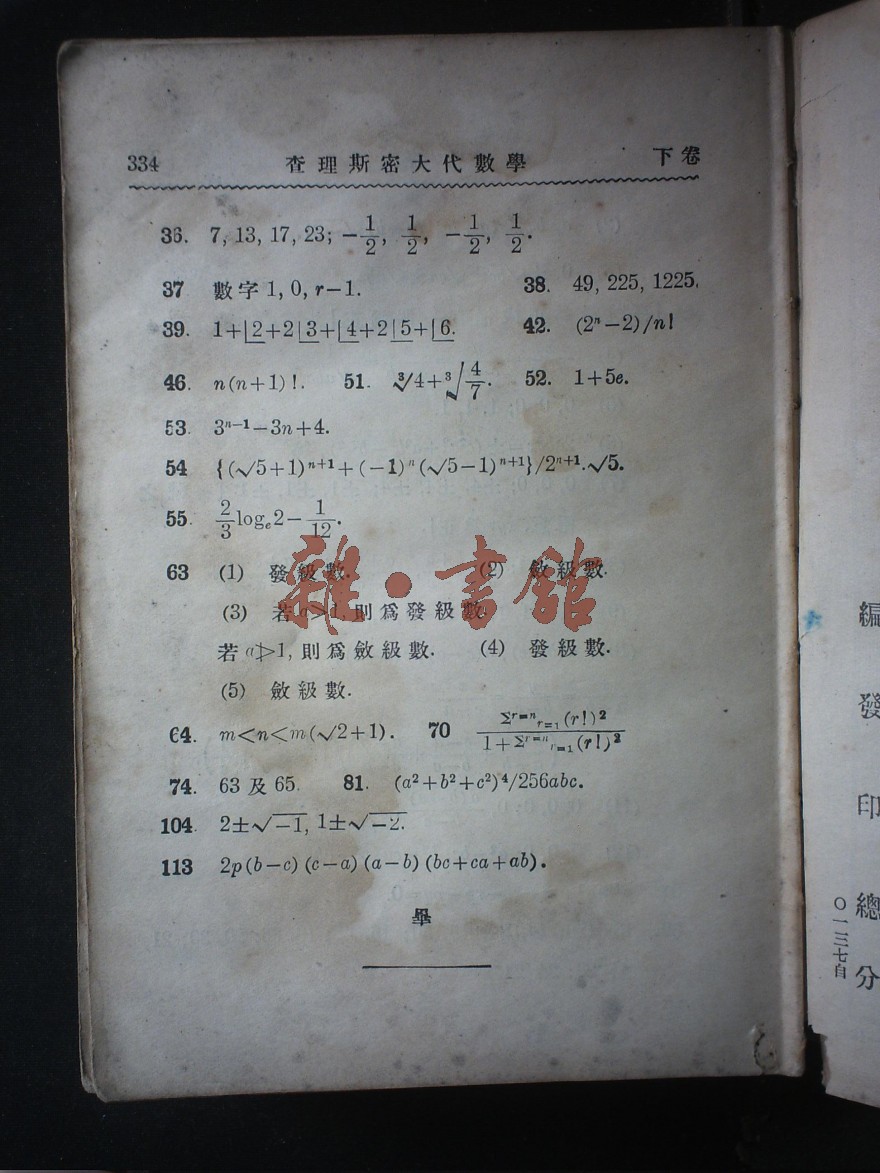 334 查理斯密大代數學 下卷
36. 7, 13, 17, 23; −1/2, 1/2, −1/2, 1/2.
37 數字 1, 0, r−1. 38. 49, 225, 1225.
39. 1+|2+2|3+|4+2|5+|6. 42. (2ⁿ−2)/n!
46. n(n+1)!. 51. ∛4+∛(4/7). 52. 1+5e.
53. 3ⁿ⁻¹−3n+4.
54 {(√5+1)ⁿ⁺¹+(−1)ⁿ(√5−1)ⁿ⁺¹}/2ⁿ⁺¹.√5.
55. 2/3 logₑ2−1/12.
63 (1) 發級數. (2) 斂級數.
(3) 若a>1, 則爲發級數.
若a≯1, 則爲斂級數. (4) 發級數.
(5) 斂級數.
64. m<n<m(√2+1). 70 Σʳ⁼ⁿᵣ₌₁(r!)²/1+Σʳ⁼ⁿᵣ₌₁(r!)²
74. 63及65. 81. (a²+b²+c²)⁴/256abc.
104. 2±√−1, 1±√−2.
113 2p(b−c)(c−a)(a−b)(bc+ca+ab).
畢
雜·書館
編
發
印
總
分
〇一三七自